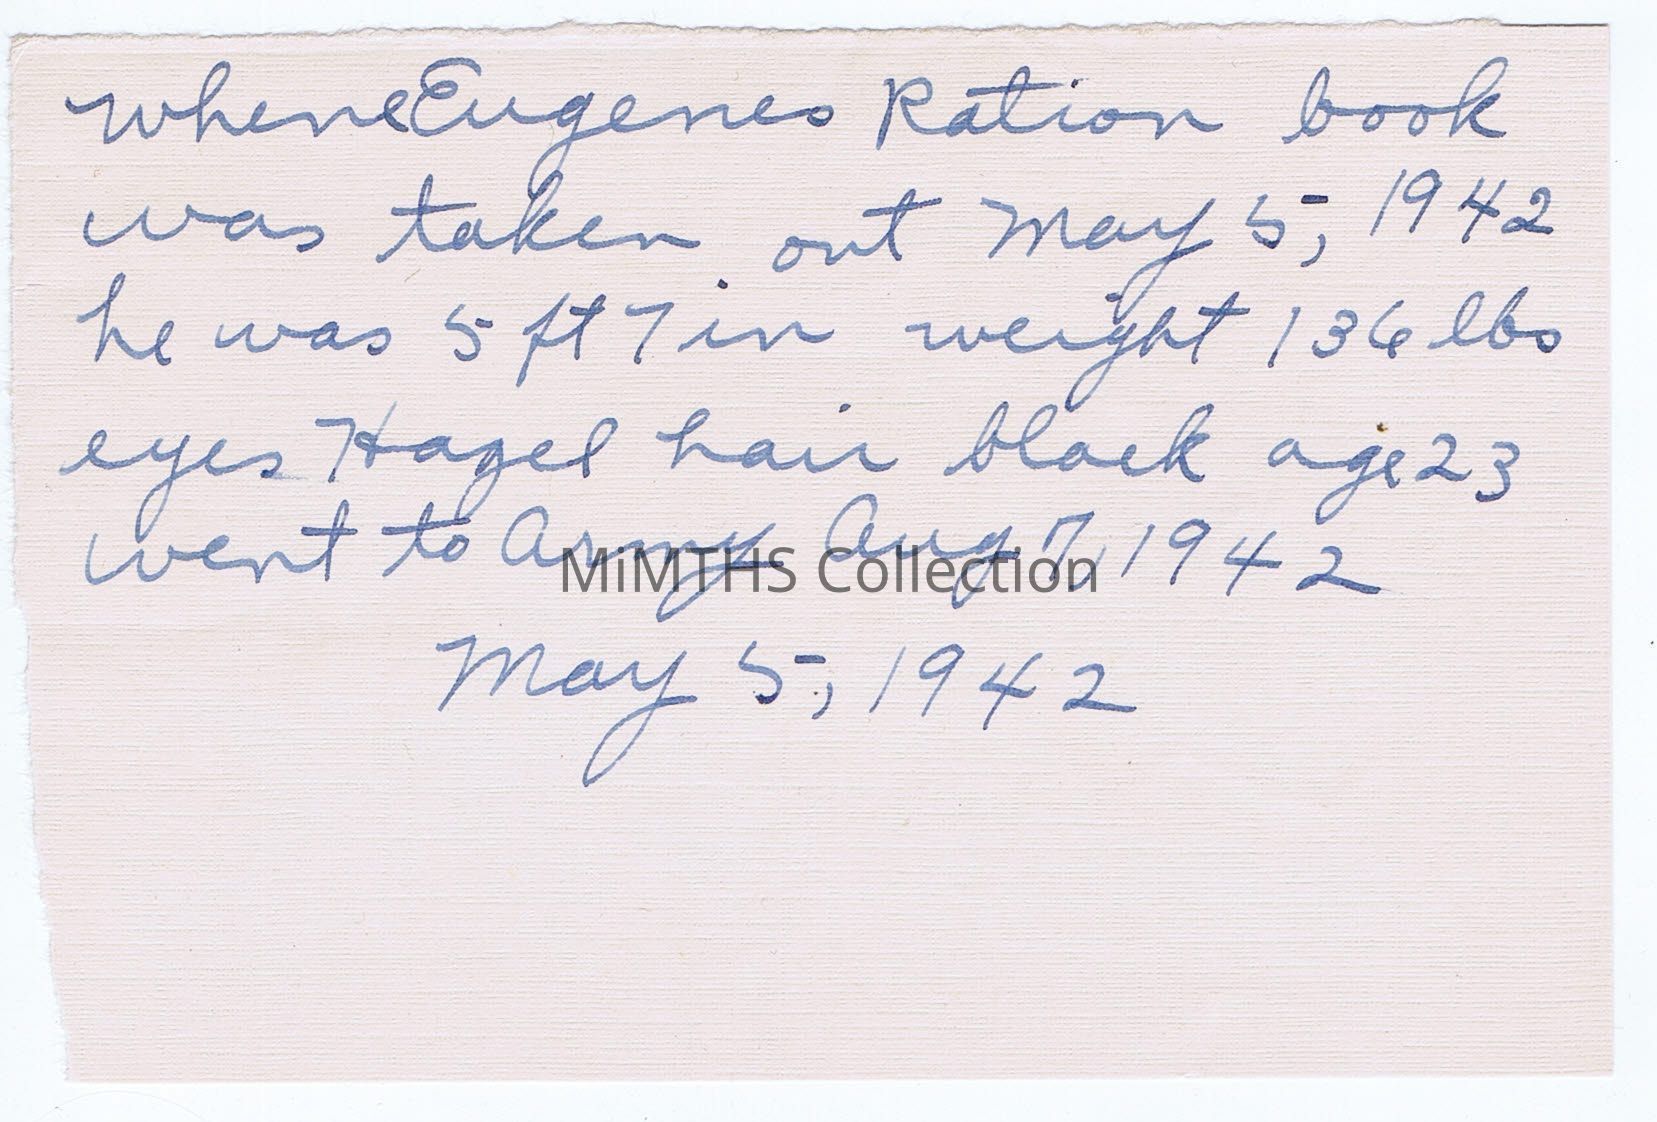 whene Eugenes Ration book
was taken out May 5, 1942
he was 5 ft 7 in weight 136 lbs
eyes Hazel hair black age 23
went to Army Aug 7, 1942
MiMTHS Collection
May 5, 1942